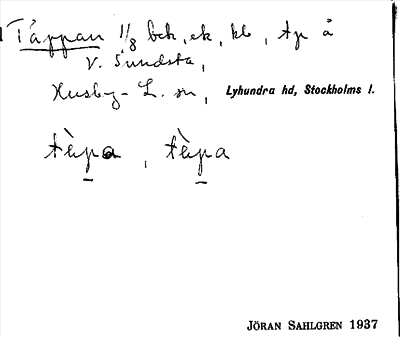 Täppan 1/8 bck, ek, kb, tp å
V. Sundsta,
Husby-L. sn, Lyhundra hd, Stockholms l.
tɛ̀pa, tɛ̀pa
JÖRAN SAHLGREN 1937